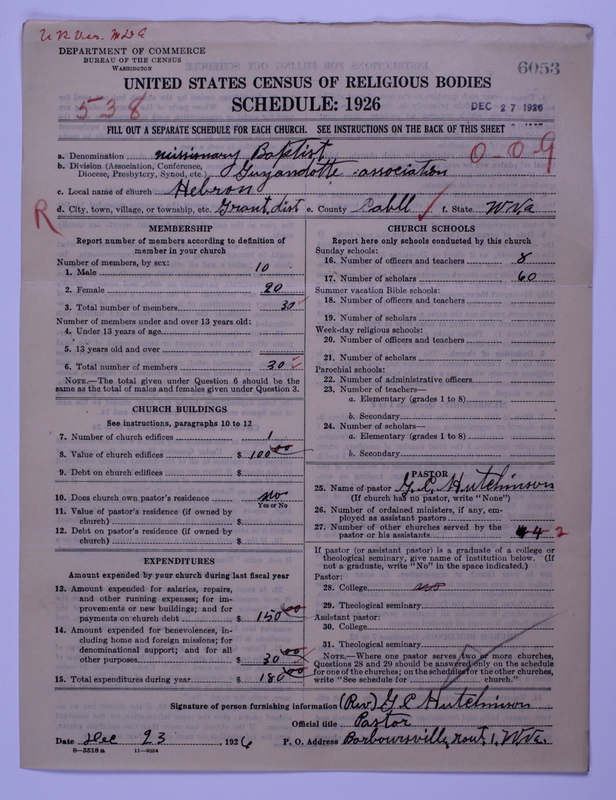 U.R. Ver. M.D.G.
DEPARTMENT OF COMMERCE
BUREAU OF THE CENSUS
WASHINGTON
6053
UNITED STATES CENSUS OF RELIGIOUS BODIES
538
SCHEDULE: 1926
DEC 27 1926
FILL OUT A SEPARATE SCHEDULE FOR EACH CHURCH. SEE INSTRUCTIONS ON THE BACK OF THIS SHEET
a. Denomination missionary Baptist
0-0-9
b. Division (Association, Conference, Diocese, Presbytery, Synod, etc.) Guyandotte association
c. Local name of church Hebron
R
d. City, town, village, or township, etc. Grant, dist e. County Cabell f. State W Va
MEMBERSHIP
Report number of members according to definition of
member in your church
Number of members, by sex:
1. Male 10
2. Female 20
3. Total number of members 30
Number of members under and over 13 years old:
4. Under 13 years of age
5. 13 years old and over
6. Total number of members 30
NOTE.—The total given under Question 6 should be the
same as the total of males and females given under Question 3.
CHURCH BUILDINGS
See instructions, paragraphs 10 to 12
7. Number of church edifices 1
8. Value of church edifices $ 100 00
9. Debt on church edifices $
10. Does church own pastor's residence no
Yes or No
11. Value of pastor's residence (if owned by
church) $
12. Debt on pastor's residence (if owned by
church) $
EXPENDITURES
Amount expended by your church during last fiscal year
13. Amount expended for salaries, repairs,
and other running expenses; for im-
provements or new buildings; and for
payments on church debt $ 150 00
14. Amount expended for benevolences, in-
cluding home and foreign missions; for
denominational support; and for all
other purposes $ 30 00
15. Total expenditures during year $ 180 00
CHURCH SCHOOLS
Report here only schools conducted by this church
Sunday schools:
16. Number of officers and teachers 8
17. Number of scholars 60
Summer vacation Bible schools:
18. Number of officers and teachers
19. Number of scholars
Week-day religious schools:
20. Number of officers and teachers
21. Number of scholars
Parochial schools:
22. Number of administrative officers
23. Number of teachers—
a. Elementary (grades 1 to 8)
b. Secondary
24. Number of scholars—
a. Elementary (grades 1 to 8)
b. Secondary
PASTOR
25. Name of pastor G. C. Hutchinson
(If church has no pastor, write "None")
26. Number of ordained ministers, if any, em-
ployed as assistant pastors
27. Number of other churches served by the
pastor or his assistants 4 2
If pastor (or assistant pastor) is a graduate of a college or
theological seminary, give name of institution below. (If
not a graduate, write "No" in the space indicated.)
Pastor:
28. College no
29. Theological seminary
Assistant pastor:
30. College
31. Theological seminary
NOTE.—Where one pastor serves two or more churches,
Questions 28 and 29 should be answered only on the schedule
for one of the churches; on the schedules for the other churches,
write "See schedule for church."
Signature of person furnishing information (Rev) G C Hutchinson
Official title Pastor
Date Dec 23, 1926 P. O. Address Barboursville, rout 1, W Va.
8—5518 a 11—9554